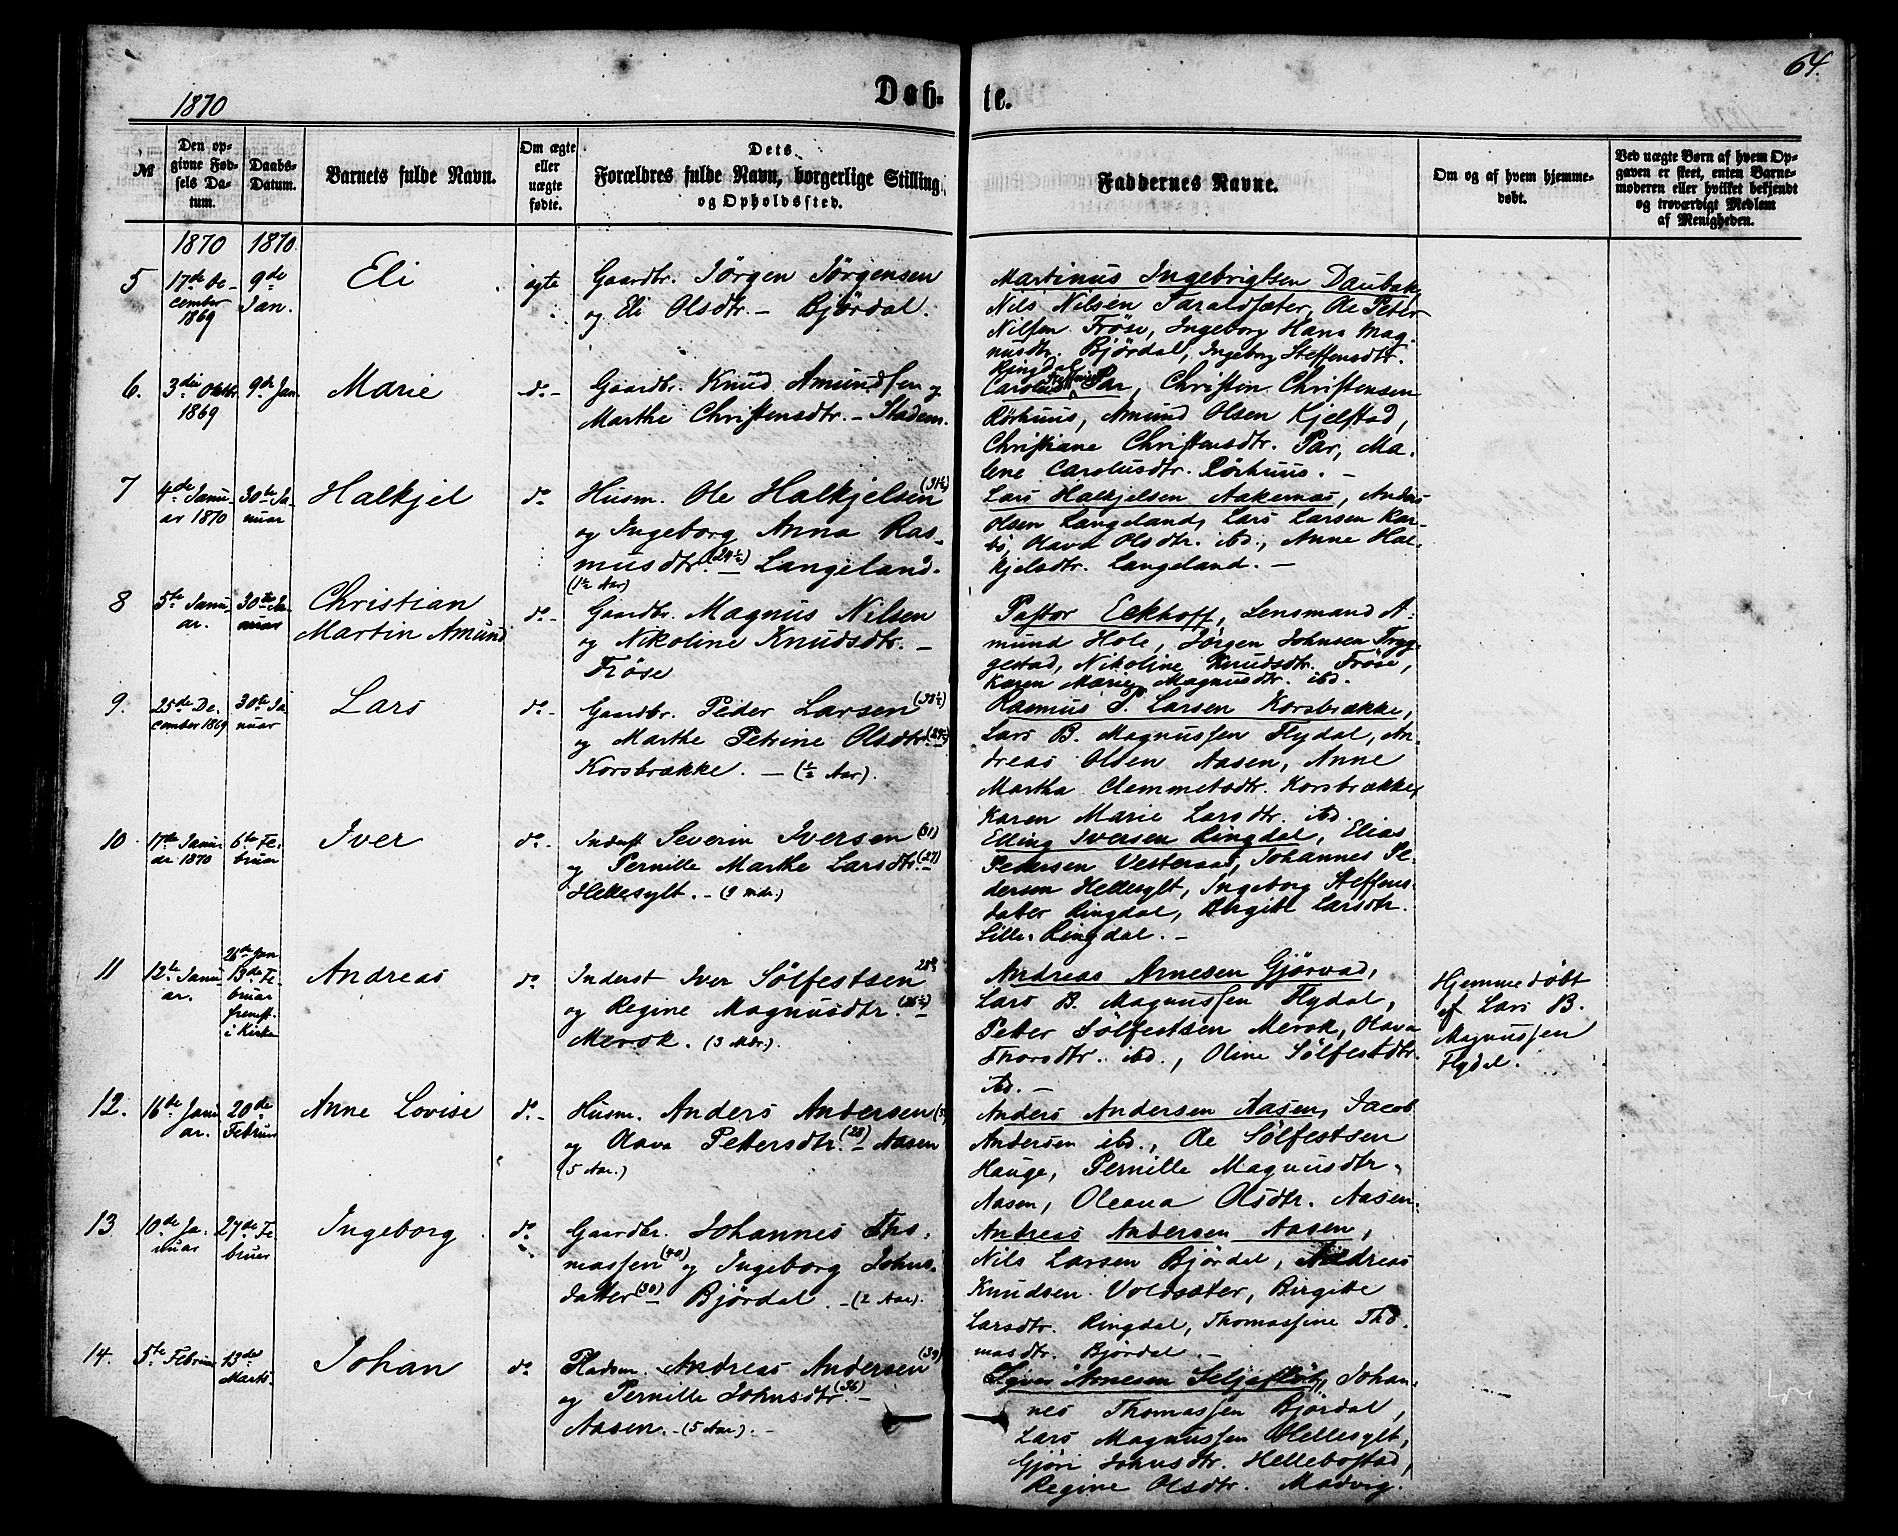 64.
1870
Døb-
te.
№
Den op-
givne Fød-
sels Da-
tum.
Daabs-
Datum.
Barnets fulde Navn.
Om ægte
eller
uægte
fødte.
Dets
Forældres fulde Navn, borgerlige Stilling
og Opholdssted.
Faddernes Navne.
Om og af hvem hjemme-
døbt.
Ved uægte Børn af hvem Op-
gaven er skeet, enten Barne-
moderen eller hvilket bekjendt
og troværdigt Medlem
af Menigheden.
1870
1870
5
17de De-
cember
1869
9de
Jan.
Eli
ægte
Gaardbr. Jörgen Jörgensen
og Eli Olsdtr. – Björdal.
Martinus Ingebrigtsen Daubak,
Nils Nilsen Taraldsæter, Ole Peter
Nilsen Fröse, Ingeborg Hans Mag-
nusdtr. Björdal, Ingeborg Steffensdtr.
Ringdal
6.
3die Oktbr
1869
9de Jan.
Marie
do. –
Gaardbr. Knud Amundsen og
Marthe Christensdtr. – Stadem.
Carolus Par, Christen Christensen
Rörhuus, Amund Olsen Kjelstad,
Christiane Christensdtr. Par, Ma-
lene Carolusdtr. Rörhuus. –
7
4de Janu-
ar 1870
30te Ja-
nuar
Halkjel
do.
Husm. Ole Halkjelsen (31½)
og Ingeborg Anna Ras-
musdtr. (24½) – Langeland.
(1½ Aar)
Lars Halkjelsen Aakernas, Anders
Olsen Langeland, Lars Larsen Kar-
bö, Olava Olsdtr. ibd., Anne Hal-
kjelsdtr. Langeland. –
8
5te Janu-
ar.
30te Ja-
nuar
Christian
Martin Amund
do. –
Gaardbr. Magnus Nilsen
og Nikoline Knudsdtr. –
Fröse
Pastor Eckhoff, Lensmand A-
mund Hole, Jörgen Johnsen Tryg-
gestad, Nikoline Knudsdtr. Fröse,
Karen Marie Magnusdtr. ibd.
9.
25de De-
cember 1869
30te Ja-
nuar
Lars
do. –
Gaardbr. Peder Larsen
og Marthe Petrine Olsdtr.
Korsbrække. – (½ Aar).
Rasmus P. Larsen Korsbrække,
Lars B. Magnussen Flydal, An-
dreas Olsen Aasen, Anne
Martha Clemmetsdtr. Korsbrække,
Karen Marie Larsdtr. ibd.
10
17de Janu-
ar 1870
6te Fe-
bruar
Iver
do. –
Inderst Severin Iversen (31)
og Pernille Marthe Larsdtr. (27) –
Hellesylt. – (9 Mdr.)
Elling Iversen Ringdal, Elias
Petersen Vesteraas, Johannes Pe-
dersen Hellesylt, Ingeborg Steffens-
datter Ringdal, Birgitte Larsdtr.
Lille-Ringdal. –
11
12te Janu-
ar.
26de Jan
13de Fe-
bruar
fremst.
i Kirke
Andreas
do.
Inderst Iver Sölfestsen
og Regine Magnusdtr.
Merok. (3 Mdr.)
Andreas Arnesen Gjörvad,
Lars B. Magnussen Flydal,
Petter Sölfestsen Merok, Olava
Thorsdtr. ibd., Oline Sölfestdtr.
ibd. –
Hjemmedöbt
af Lars B.
Magnussen
Flydal.
12.
16de Janu-
ar.
20de
Februar
Anne Lovise
do. –
Husm. Anders Andersen
og Olava Pettersdtr. (28) – Aasen
(5 Aar.)
Anders Andersen Aasen, Jacob
Andersen ibd., Ole Sölfestsen
Hauge, Pernille Magnusdtr.
Aasen, Oleana Olsdtr. Aasen.
13
10de Ja-
nuar
27de Fe-
bruar
Ingeborg
do.
Gaardbr. Johannes Tho-
massen (40) og Ingeborg Johns-
datter (30) – Björdal. – (2 Aar).
Andreas Andersen Aasen,
Nils Larsen Björdal, Andreas
Knudsen Voldsæter, Birgitte
Larsdtr. Ringdal, Thomassine Tho-
masdtr. Björdal. –
14.
5te Februar
13de
Marts.
Johan
do.
Pladsm. Andreas Andersen (39)
og Pernille Johnsdtr. (36) –
Aasen. – (5 Aar). –
Arnesen Seljeflot, Johan-
nes Thomassen Björdal,
Lars Magnussen Hellesylt,
Gjöri Johnsdtr. Hellebostad,
Regine Olsdtr. Madvig.